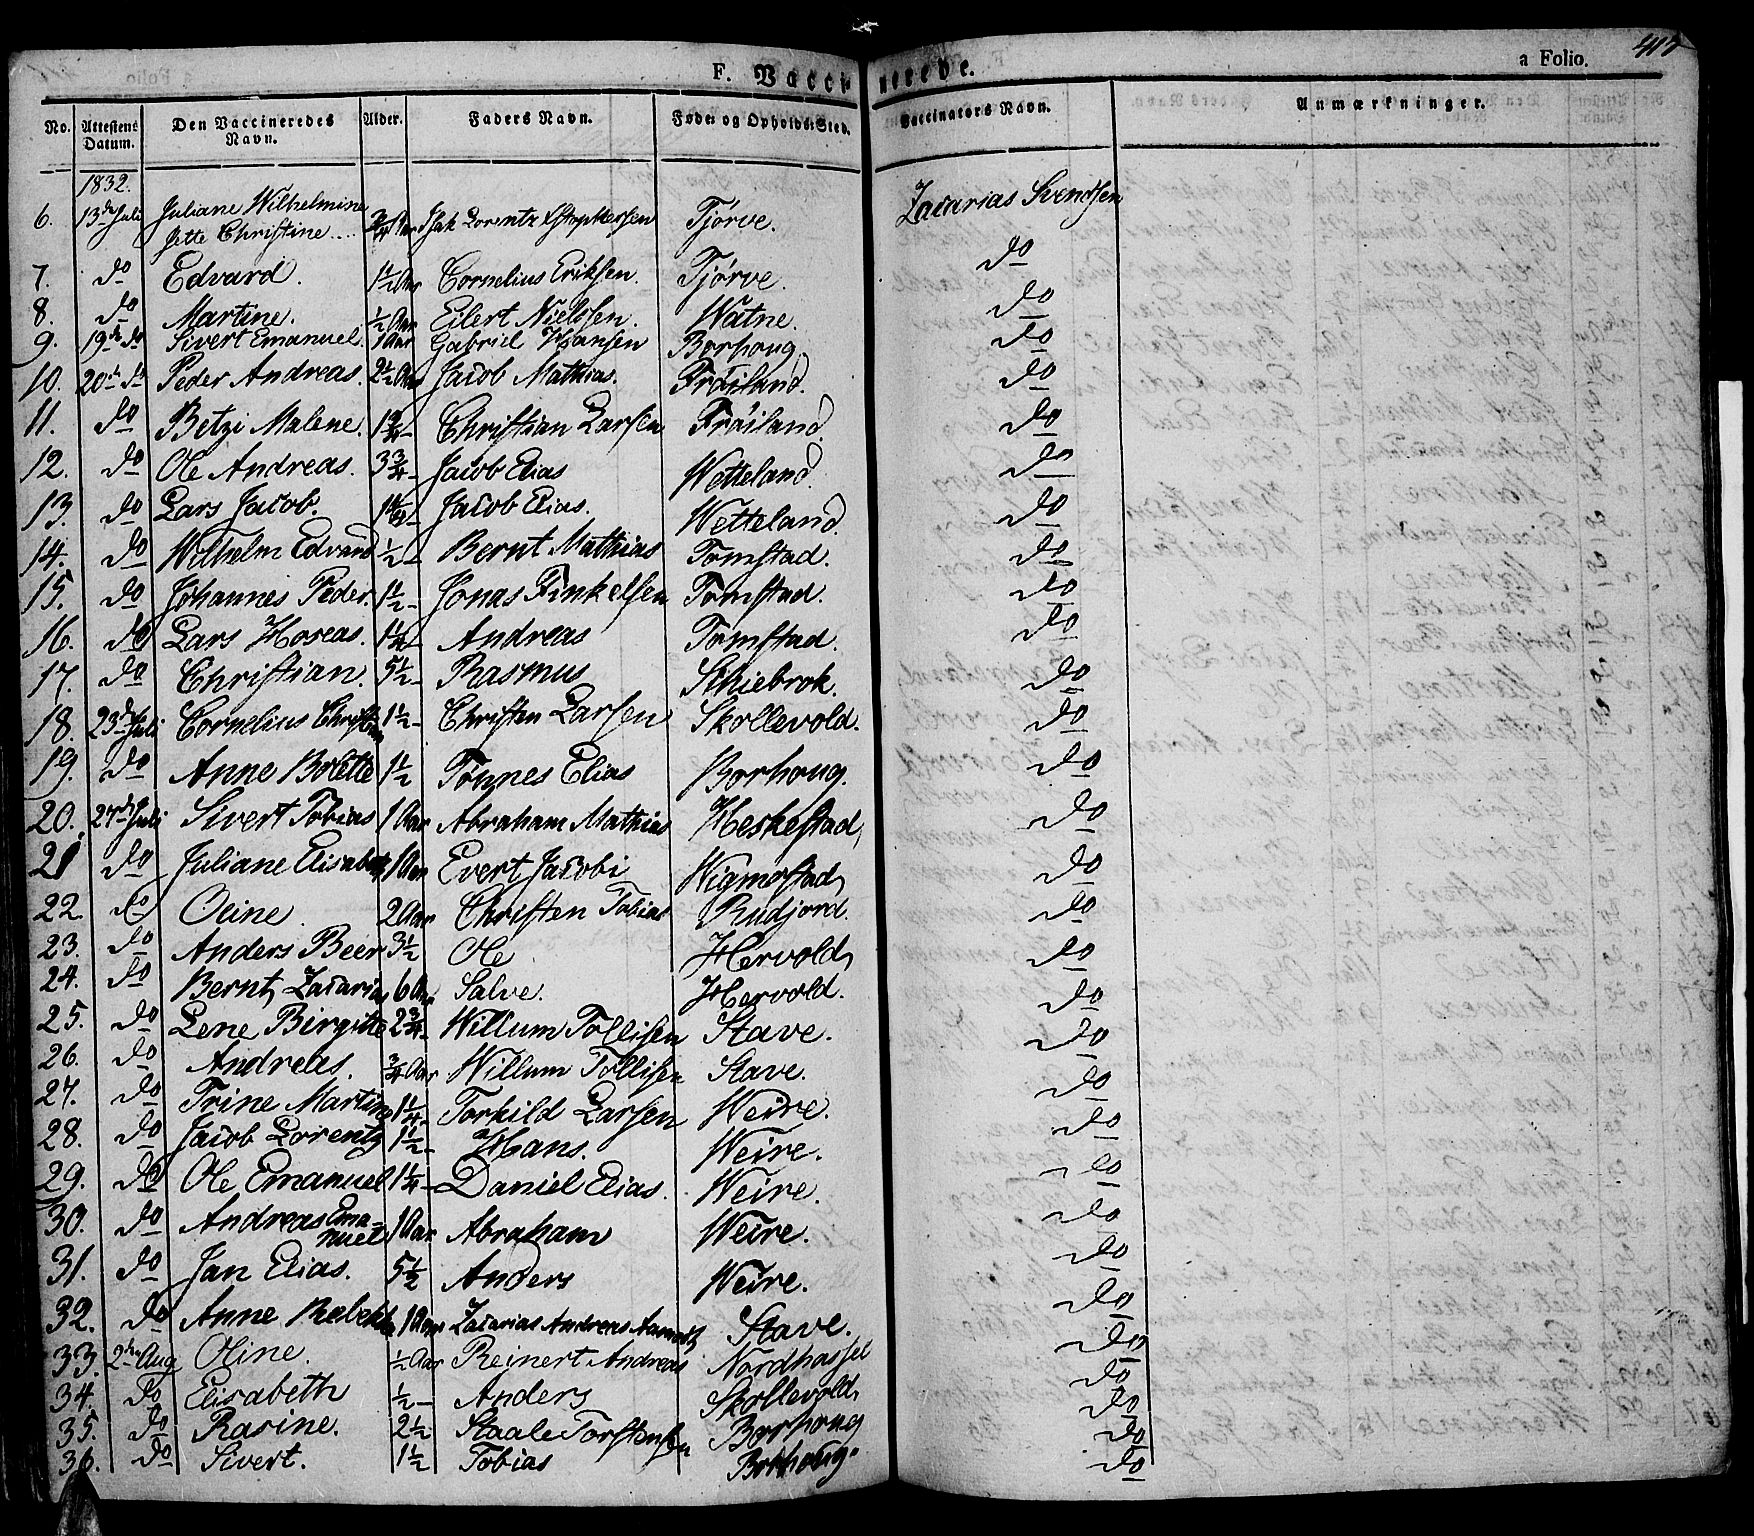 F. Vaccinerede.
a Folio. 417
No. Attestens Datum. Den Vaccineredes Navn. Alder. Faders Navn. Føde: og Opholds: Sted. Vaccinators Navn. Anmærkninger.
1832.
6. 13de Juli Juliane Wilhelmine Jitte Christine.... 3/4 Aar Isak Lorentz Tjørve. Zacarias Svendsen
7. do Edvard. 1 1/2 Aar Cornelius Eriksen. Tjørve. do
8. do Martine. 1/2 Aar Eilert Nielssen. Watne. do
9. 19de do Sivert Emanuel. 1 Aar Gabriel Hansen Borhoug. do
10. 20de do Peder Andreas. 2 1/2 Aar Jacob Mathias. Frøiland. do
11. do Betzi Malene. 1 3/4 - Christian Larsen Frøiland. do
12. do Ole Andreas. 3 3/4 - Jacob Elias Wetteland. do
13. do Lars Jacob. 1 1/4 - Jacob Elias. Wetteland. do
14. do Wilhelm Edvard 1/2 - Bernt Mathias Tomstad. do
15. do Johannes Peder. 1 1/2 - Jonas Finkelsen Tomstad. do
16. do Lars Horeas. 1 1/4 - Andreas Tomstad. do
17. do Christian. 5 1/2 - Rasmus Schiebrok. do
18. 23de Juli Cornelius 1 1/2 - Christen Larsen Skollevold. do
19. do Anne Bolette 1 1/2 Tønnes Elias Borhoug. do
20. 27de Juli Sivert Tobias 1 Aar Abraham Mathias Heskestad, do
21 do Juliane Elisabeth 1 Aar Evert Jacobi Wigmostad, do
22 do Oline. 2 Aar Christen Tobias Rudjord. do
23. do Anders Beer 3 1/2 Ole Hervold, do
24. do Bernt Zacarias 6 Aar Salve. Hervold. do
25. do Lene Birgitte 2 3/4 - Willum Tollisen Stave. do
26. do Andreas. 3/4 Aar Willum Tollisen Stave. do
27. do Trine Martine 1 1/4 - Torkild Larsen Weire. do
28. do Jacob Lorentz 1 1/2 - Hans. Weire. do
29. do Ole Emanuel 1 1/4 - Daniel Elias. Weire. do
30. do Andreas Ema=nuel 1 Aar Abraham Weire. do
31. do Jan Elias. 5 1/2 Anders Weire. do
32. do Anne Rebekka 1 Aar Zacarias Andreas Stave. do
33. 2den Aug Oline. 1/2 Aar Reinert Andreas Nordhassel do
34. do Elisabeth 1/2 - Anders Skollevold, do
35. do Rasine. 2 1/2 Staale Torstensen Borhoug do
36. do Sivert. 1 1/2 Tobias Borhoug. do